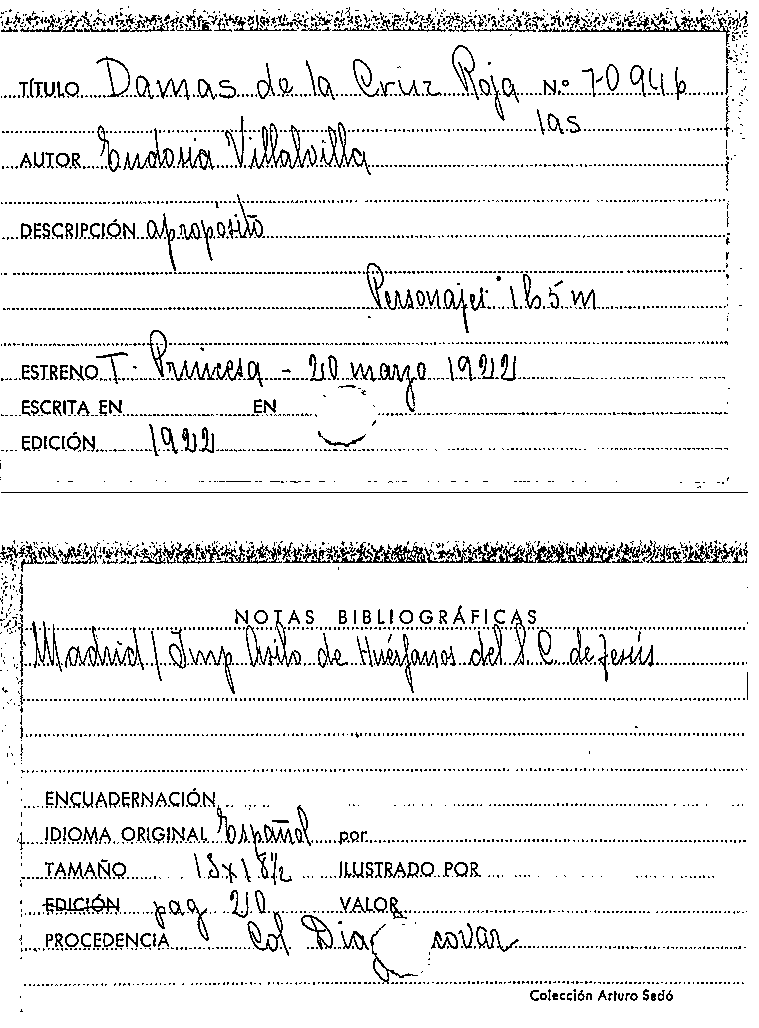 TÍTULO Damas de la Cruz Roja N.º 70946
las
AUTOR Eudosia Villalvilla
DESCRIPCIÓN apropósito
Personajes 1h 5m
ESTRENO T. Princesa - 20 marzo 1922
ESCRITA EN EN
EDICIÓN 1922
NOTAS BIBLIOGRÁFICAS
Madrid / Imp Asilo de Huérfanos del S. C. de Jesús
ENCUADERNACIÓN
IDIOMA ORIGINAL Español por
TAMAÑO ILUSTRADO POR
EDICIÓN pag 20 VALOR
PROCEDENCIA Col Dia rovar
Colección Arturo Sedó